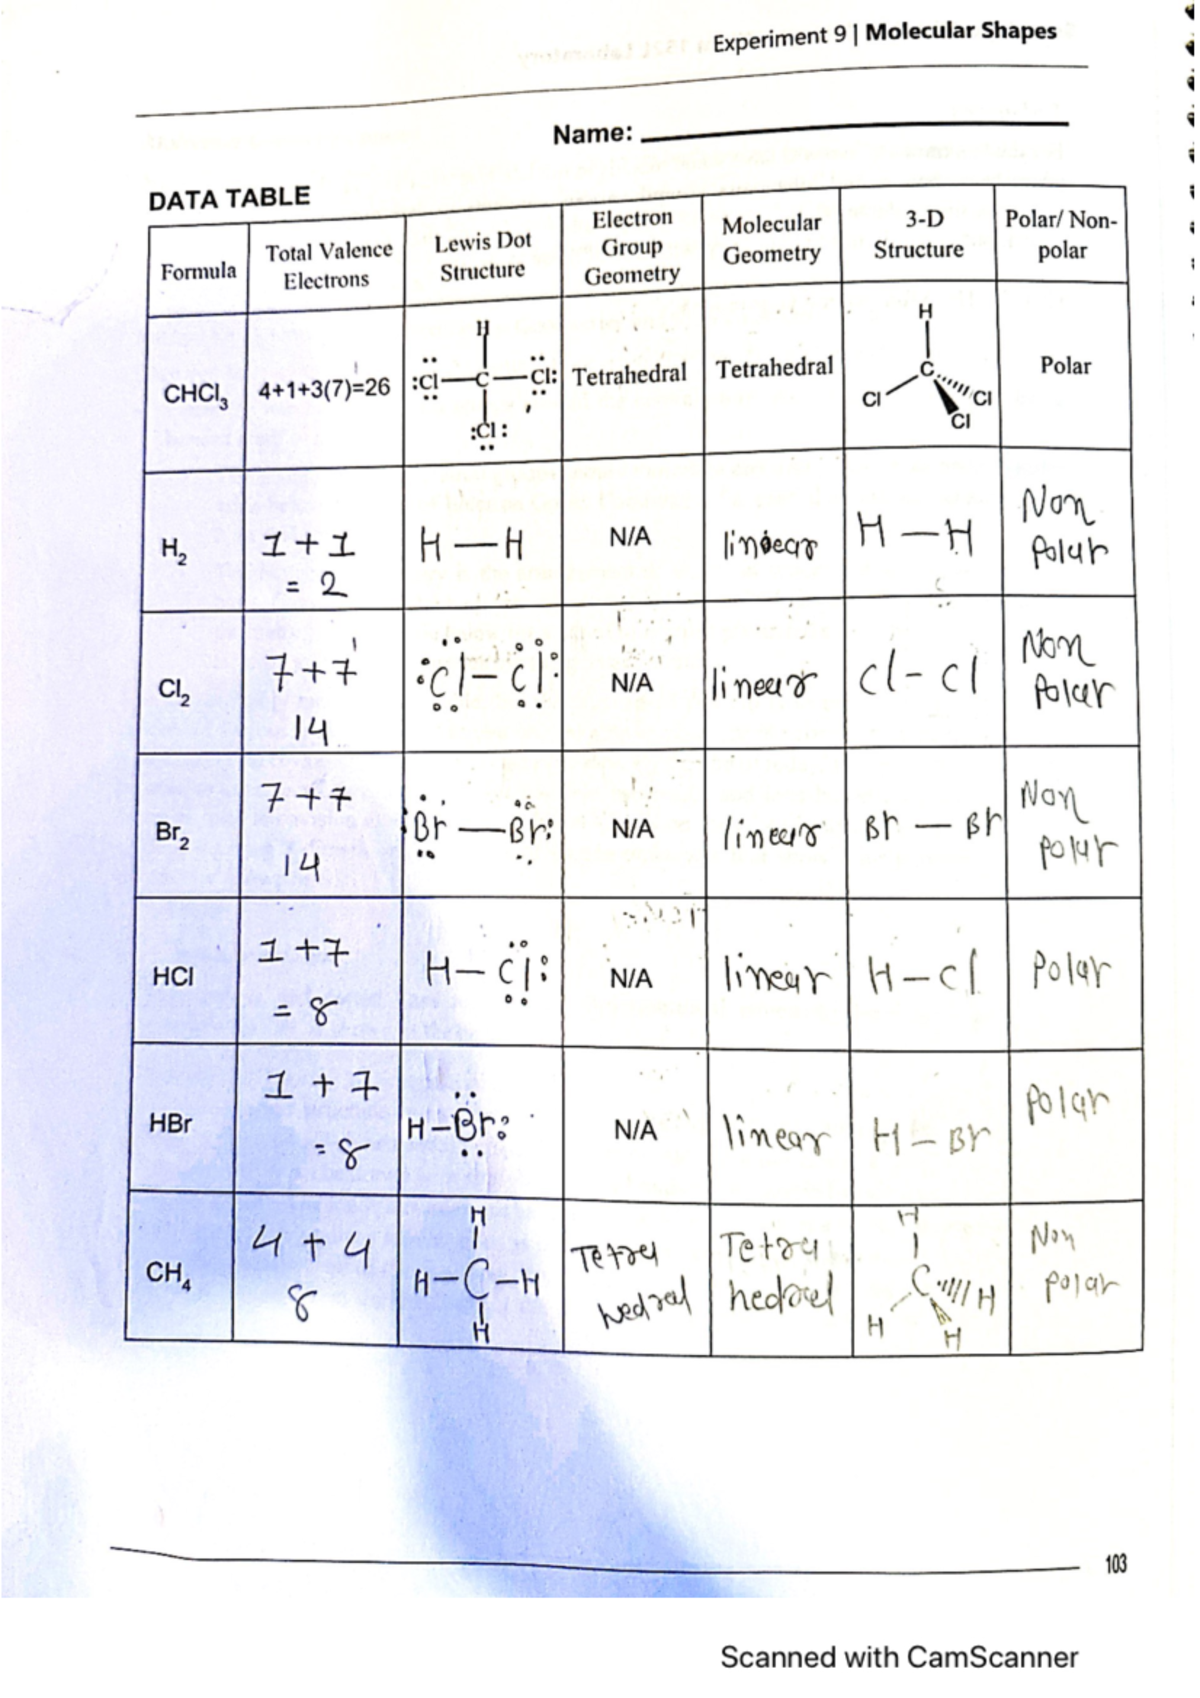 Experiment 9 | Molecular Shapes
Name:
DATA TABLE
Formula
Total Valence
Electrons
Lewis Dot
Structure
Electron
Group
Geometry
Molecular
Geometry
3-D
Structure
Polar/ Non-
polar
CHCl₃
4+1+3(7)=26
H
:Cl—C—Cl:
:Cl:
Tetrahedral
Tetrahedral
H
C
Cl
Cl
Cl
Polar
H₂
1+1
= 2
H—H
N/A
linear
H—H
Non
Polar
Cl₂
7+7
14
:Cl—Cl:
N/A
linear
Cl-Cl
Non
Polar
Br₂
7+7
14
:Br—Br:
N/A
linear
Br—Br
Non
Polar
HCl
1+7
= 8
H—Cl:
N/A
linear
H—Cl
Polar
HBr
1 + 7
= 8
H—Br:
N/A
linear
H—Br
Polar
CH₄
4 + 4
8
H
H—C—H
H
Tetra
hedral
Tetra
hedral
H
C
H
H
H
Non
polar
103
Scanned with CamScanner